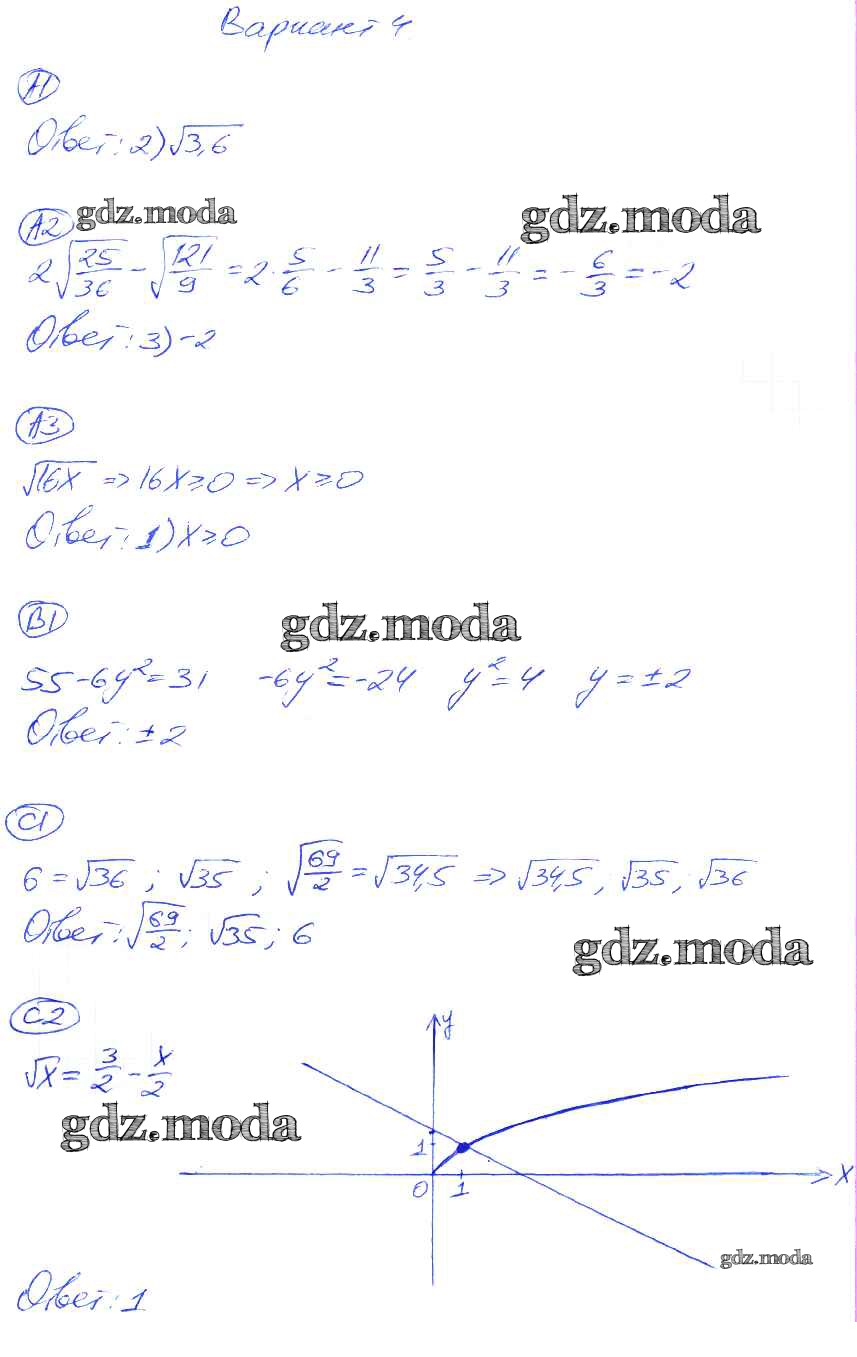 Вариант 4
А1
Ответ: 2) √3,6
А2 gdz.moda gdz.moda
2√25/36 - √121/9 = 2·5/6 - 11/3 = 5/3 - 11/3 = -6/3 = -2
Ответ: 3) -2
А3
√16x => 16x≥0 => x≥0
Ответ: 1) x≥0
В1 gdz.moda
55-6y²=31 -6y²=-24 y²=4 y=±2
Ответ: ±2
С1
6=√36 ; √35 ; √69/2 = √34,5 => √34,5, √35, √36
Ответ: √69/2; √35; 6
gdz.moda
С2 y
√x = 3/2 - x/2
gdz.moda
1
0 1 x
gdz.moda
Ответ: 1